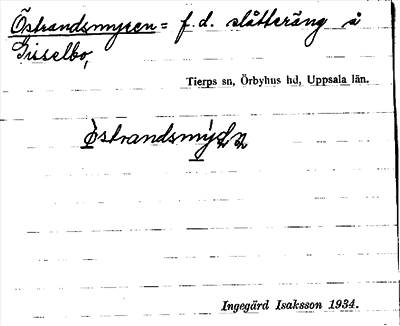 Östrandsmyren = f. d. slåtteräng å
Grisselbo,
Tierps sn, Örbyhus hd, Uppsala län.
Ingegärd Isaksson 1934.